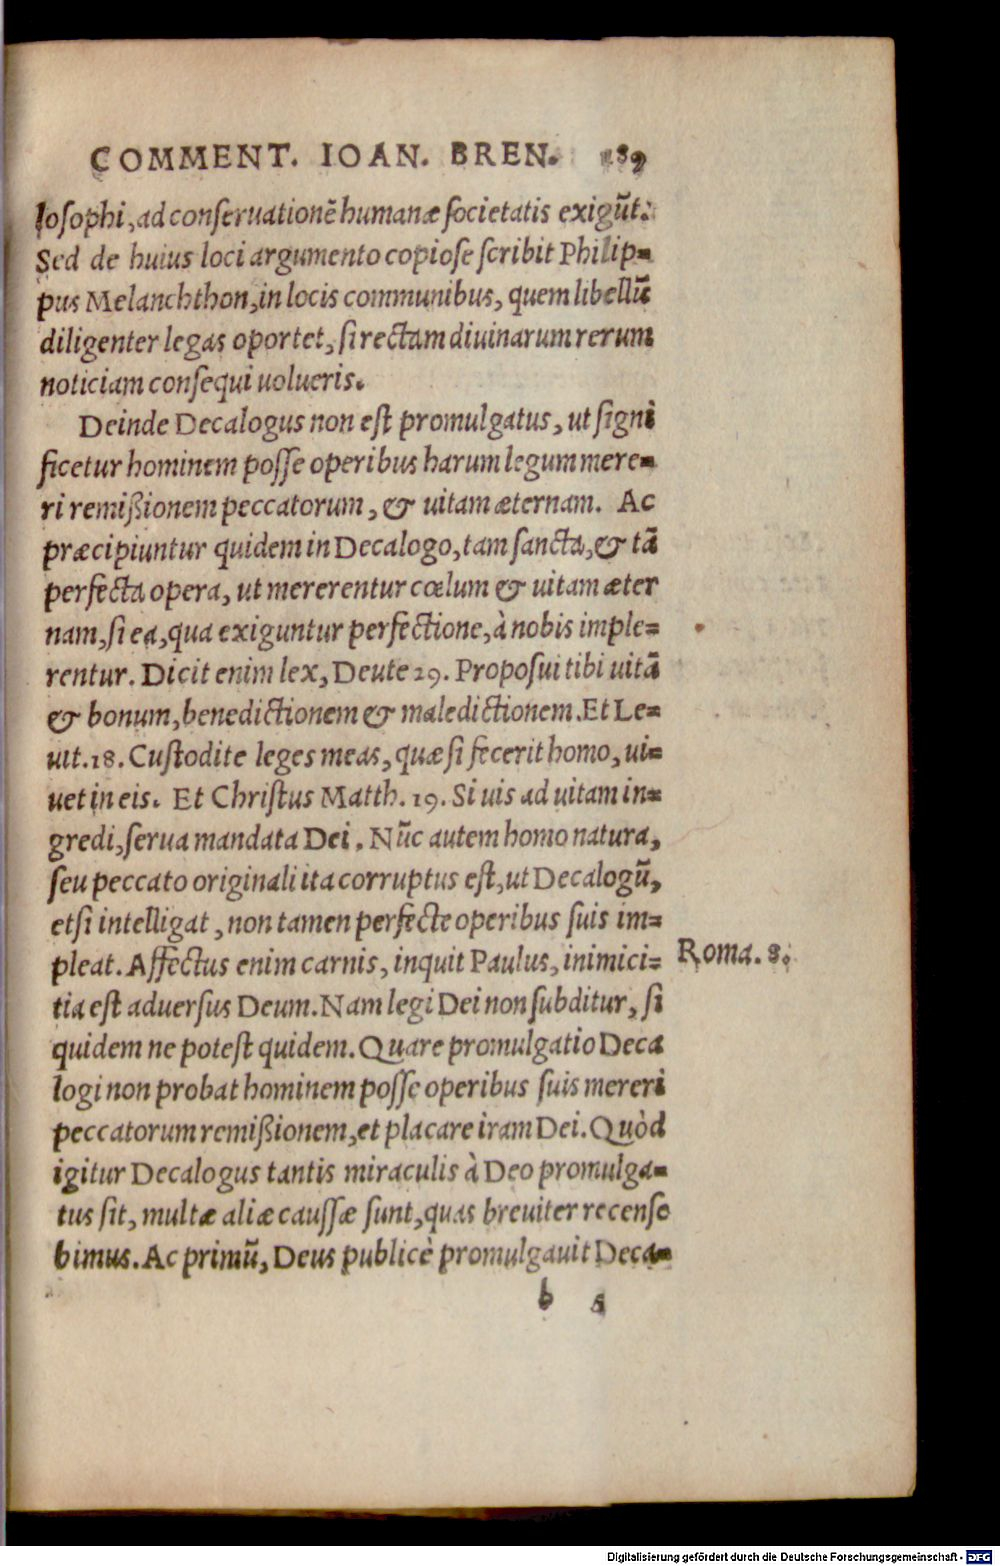 COMMENT. IOAN. BREN. 189
losophi, ad conseruationē humanæ societatis exigūt.
Sed de huius loci argumento copiose scribit Philip=
pus Melanchthon, in locis communibus, quem libellū
diligenter legas oportet, si rectam diuinarum rerum
noticiam consequi uolueris.
Deinde Decalogus non est promulgatus, ut signi
ficetur hominem posse operibus harum legum mere=
ri remißionem peccatorum, & uitam æternam. Ac
præcipiuntur quidem in Decalogo, tam sancta, & tā
perfecta opera, ut mererentur cœlum & uitam æter
nam, si ea, qua exiguntur perfectione, à nobis imple=
rentur. Dicit enim lex, Deute 29. Proposui tibi uitā
& bonum, benedictionem & maledictionem. Et Le=
uit. 18. Custodite leges meas, quæ si fecerit homo, ui=
uet in eis. Et Christus Matth. 19. Si uis ad uitam in=
gredi, serua mandata Dei. Nūc autem homo natura,
seu peccato originali ita corruptus est, ut Decalogū,
etsi intelligat, non tamen perfecte operibus suis im=
pleat. Affectus enim carnis, inquit Paulus, inimici=
Roma. 8.
tia est aduersus Deum. Nam legi Dei non subditur, si
quidem ne potest quidem. Quare promulgatio Deca
logi non probat hominem posse operibus suis mereri
peccatorum remißionem, et placare iram Dei. Quòd
igitur Decalogus tantis miraculis à Deo promulga=
tus sit, multæ aliæ caussæ sunt, quas breuiter recense
bimus. Ac primū, Deus publicè promulgauit Deca=
b 5
Digitalisierung gefördert durch die Deutsche Forschungsgemeinschaft - DFG